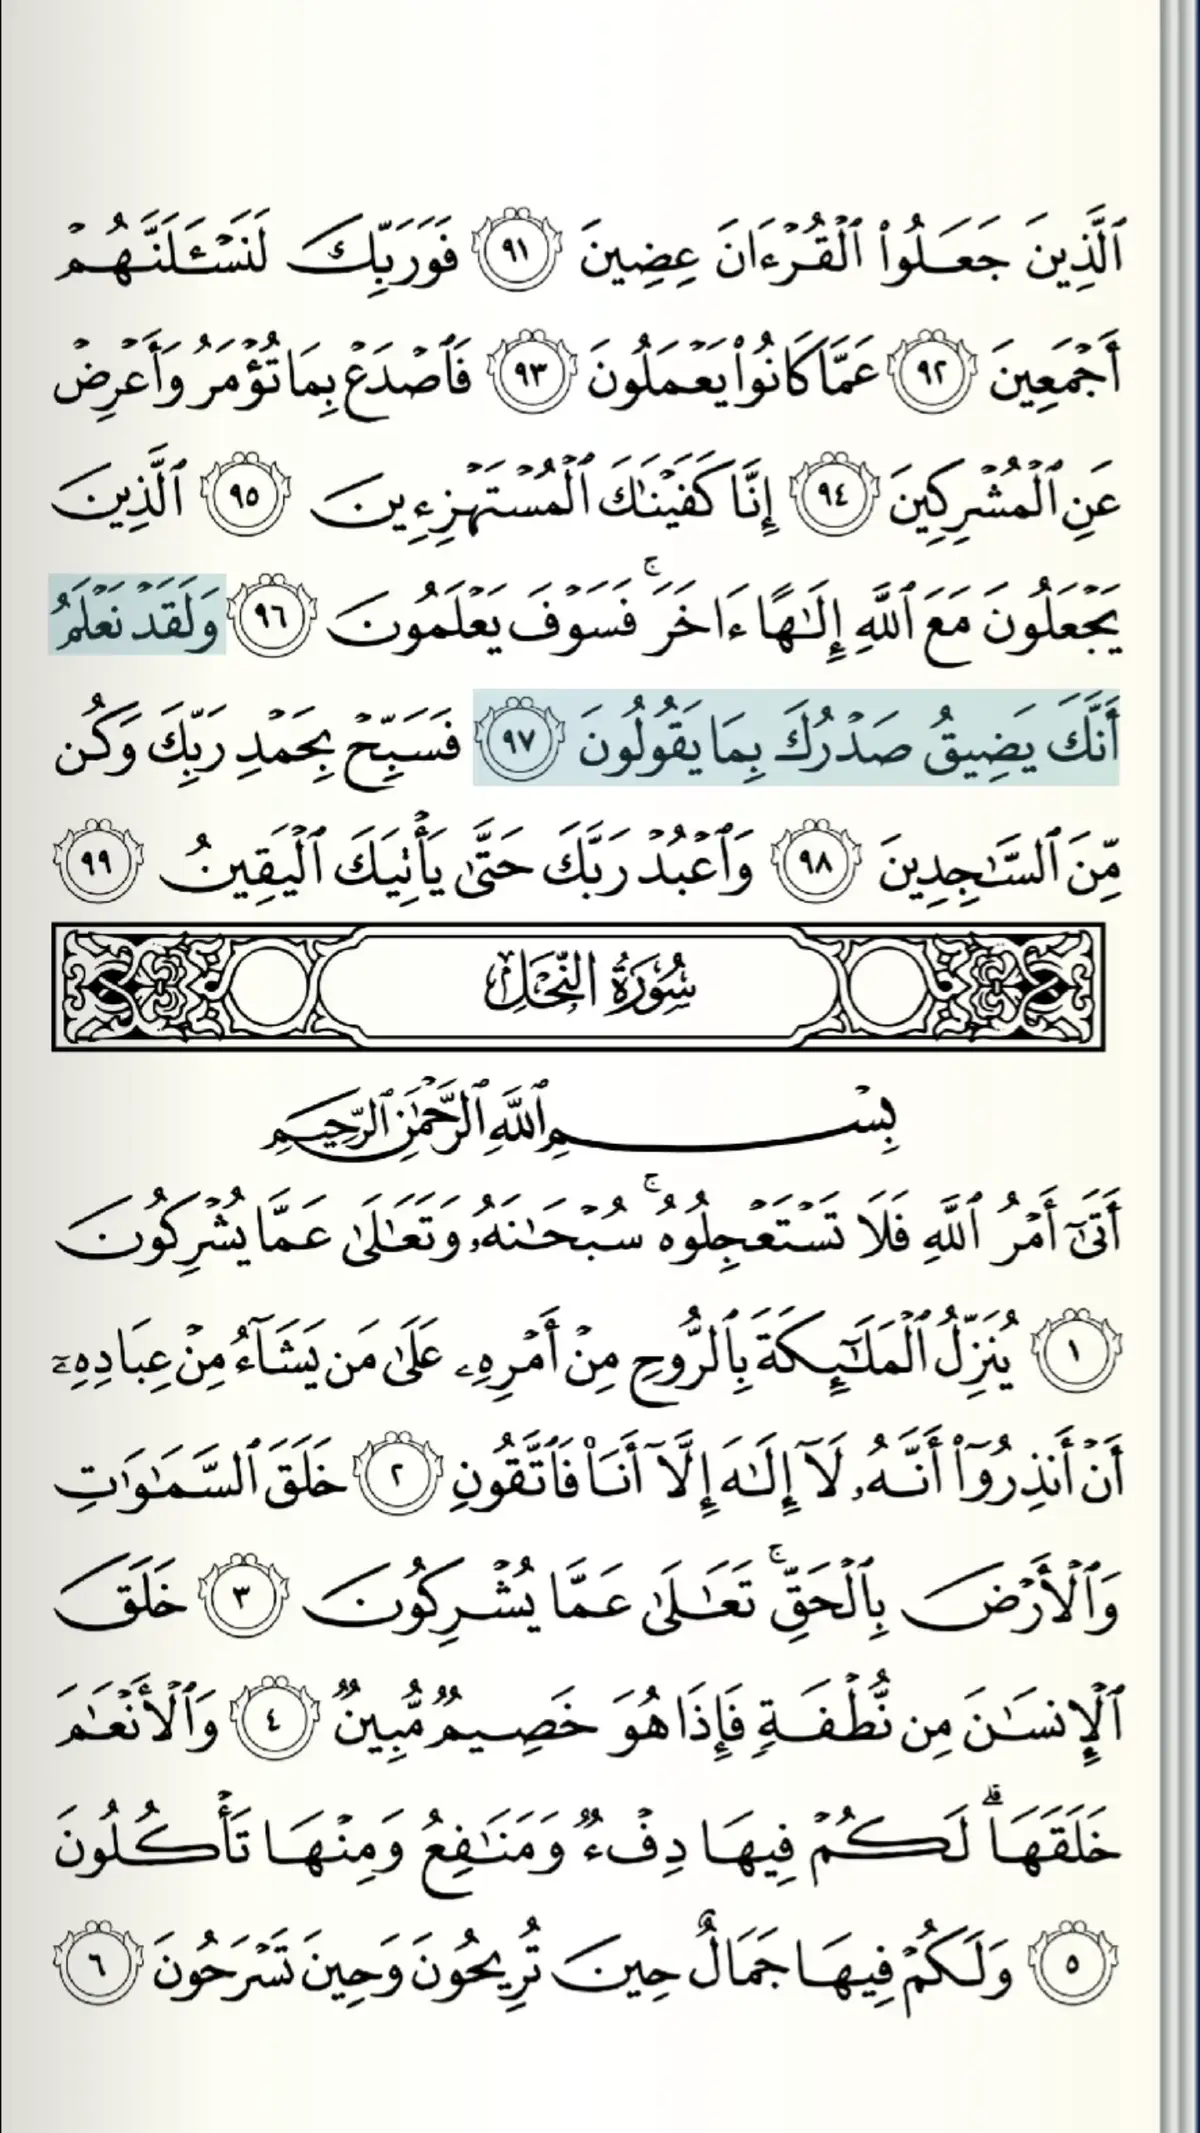 ٱلَّذِينَ جَعَلُوا۟ ٱلْقُرْءَانَ عِضِينَ ٩١ فَوَرَبِّكَ لَنَسْـَٔلَنَّهُمْ
أَجْمَعِينَ ٩٢ عَمَّا كَانُوا۟ يَعْمَلُونَ ٩٣ فَٱصْدَعْ بِمَا تُؤْمَرُ وَأَعْرِضْ
عَنِ ٱلْمُشْرِكِينَ ٩٤ إِنَّا كَفَيْنَـٰكَ ٱلْمُسْتَهْزِءِينَ ٩٥ ٱلَّذِينَ
يَجْعَلُونَ مَعَ ٱللَّهِ إِلَـٰهًا ءَاخَرَ ۚ فَسَوْفَ يَعْلَمُونَ ٩٦ وَلَقَدْ نَعْلَمُ
أَنَّكَ يَضِيقُ صَدْرُكَ بِمَا يَقُولُونَ ٩٧ فَسَبِّحْ بِحَمْدِ رَبِّكَ وَكُن
مِّنَ ٱلسَّـٰجِدِينَ ٩٨ وَٱعْبُدْ رَبَّكَ حَتَّىٰ يَأْتِيَكَ ٱلْيَقِينُ ٩٩
سُورَةُ النَّحْلِ
بِسْمِ ٱللَّهِ ٱلرَّحْمَـٰنِ ٱلرَّحِيمِ
أَتَىٰٓ أَمْرُ ٱللَّهِ فَلَا تَسْتَعْجِلُوهُ ۚ سُبْحَـٰنَهُۥ وَتَعَـٰلَىٰ عَمَّا يُشْرِكُونَ
١ يُنَزِّلُ ٱلْمَلَـٰٓئِكَةَ بِٱلرُّوحِ مِنْ أَمْرِهِۦ عَلَىٰ مَن يَشَآءُ مِنْ عِبَادِهِۦٓ
أَنْ أَنذِرُوٓا۟ أَنَّهُۥ لَآ إِلَـٰهَ إِلَّآ أَنَا۠ فَٱتَّقُونِ ٢ خَلَقَ ٱلسَّمَـٰوَٰتِ
وَٱلْأَرْضَ بِٱلْحَقِّ ۚ تَعَـٰلَىٰ عَمَّا يُشْرِكُونَ ٣ خَلَقَ
ٱلْإِنسَـٰنَ مِن نُّطْفَةٍ فَإِذَا هُوَ خَصِيمٌ مُّبِينٌ ٤ وَٱلْأَنْعَـٰمَ
خَلَقَهَا ۗ لَكُمْ فِيهَا دِفْءٌ وَمَنَـٰفِعُ وَمِنْهَا تَأْكُلُونَ
٥ وَلَكُمْ فِيهَا جَمَالٌ حِينَ تُرِيحُونَ وَحِينَ تَسْرَحُونَ ٦